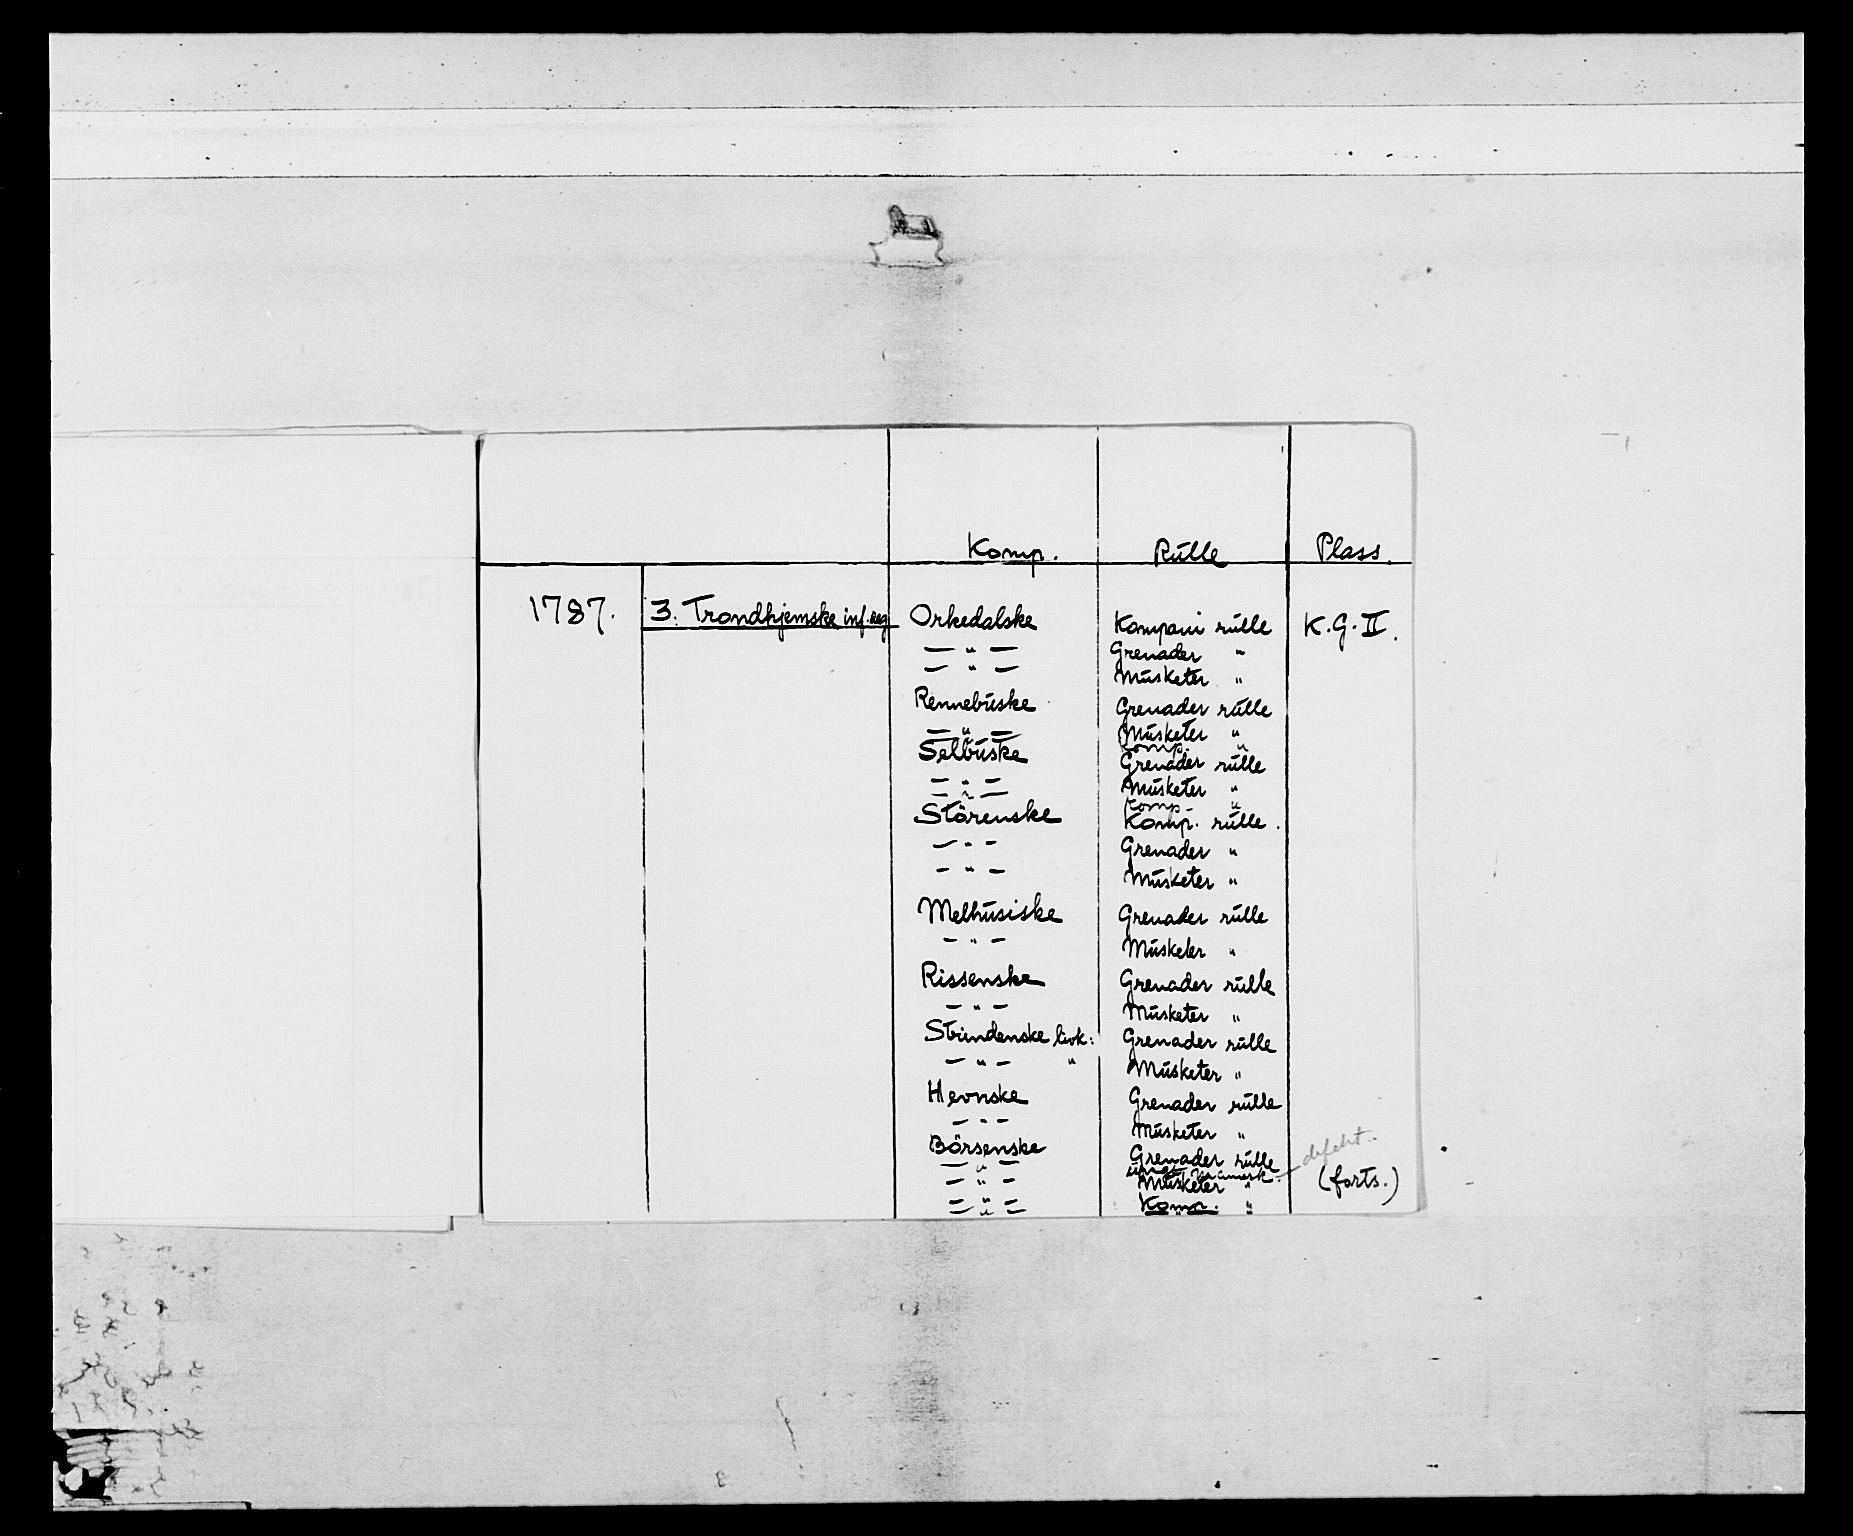 Komp. Rulle Plass.
1787. 3. Trondhjemske inf. reg Orkedalske Kompani rulle K.G.II.
— " — Grenader "
— " — Musketer "
Rennebuske Grenader rulle
— " — Musketer "
— " — Komp. "
Selbuske Grenader rulle
— " — Musketer "
— " — Komp. "
Störenske Komp. rulle.
— " — Grenader "
— " — Musketer "
Melhusiske Grenader rulle
— " — Musketer "
Rissenske Grenader rulle
— " — Musketer "
Strindenske livk: Grenader rulle
— " — " Musketer "
Hevnske Grenader rulle
— " — Musketer "
Börsenske Grenader rulle
— " — — defekt..
— " — Musketer " (forts.)
— " — Komp. "
— " — "